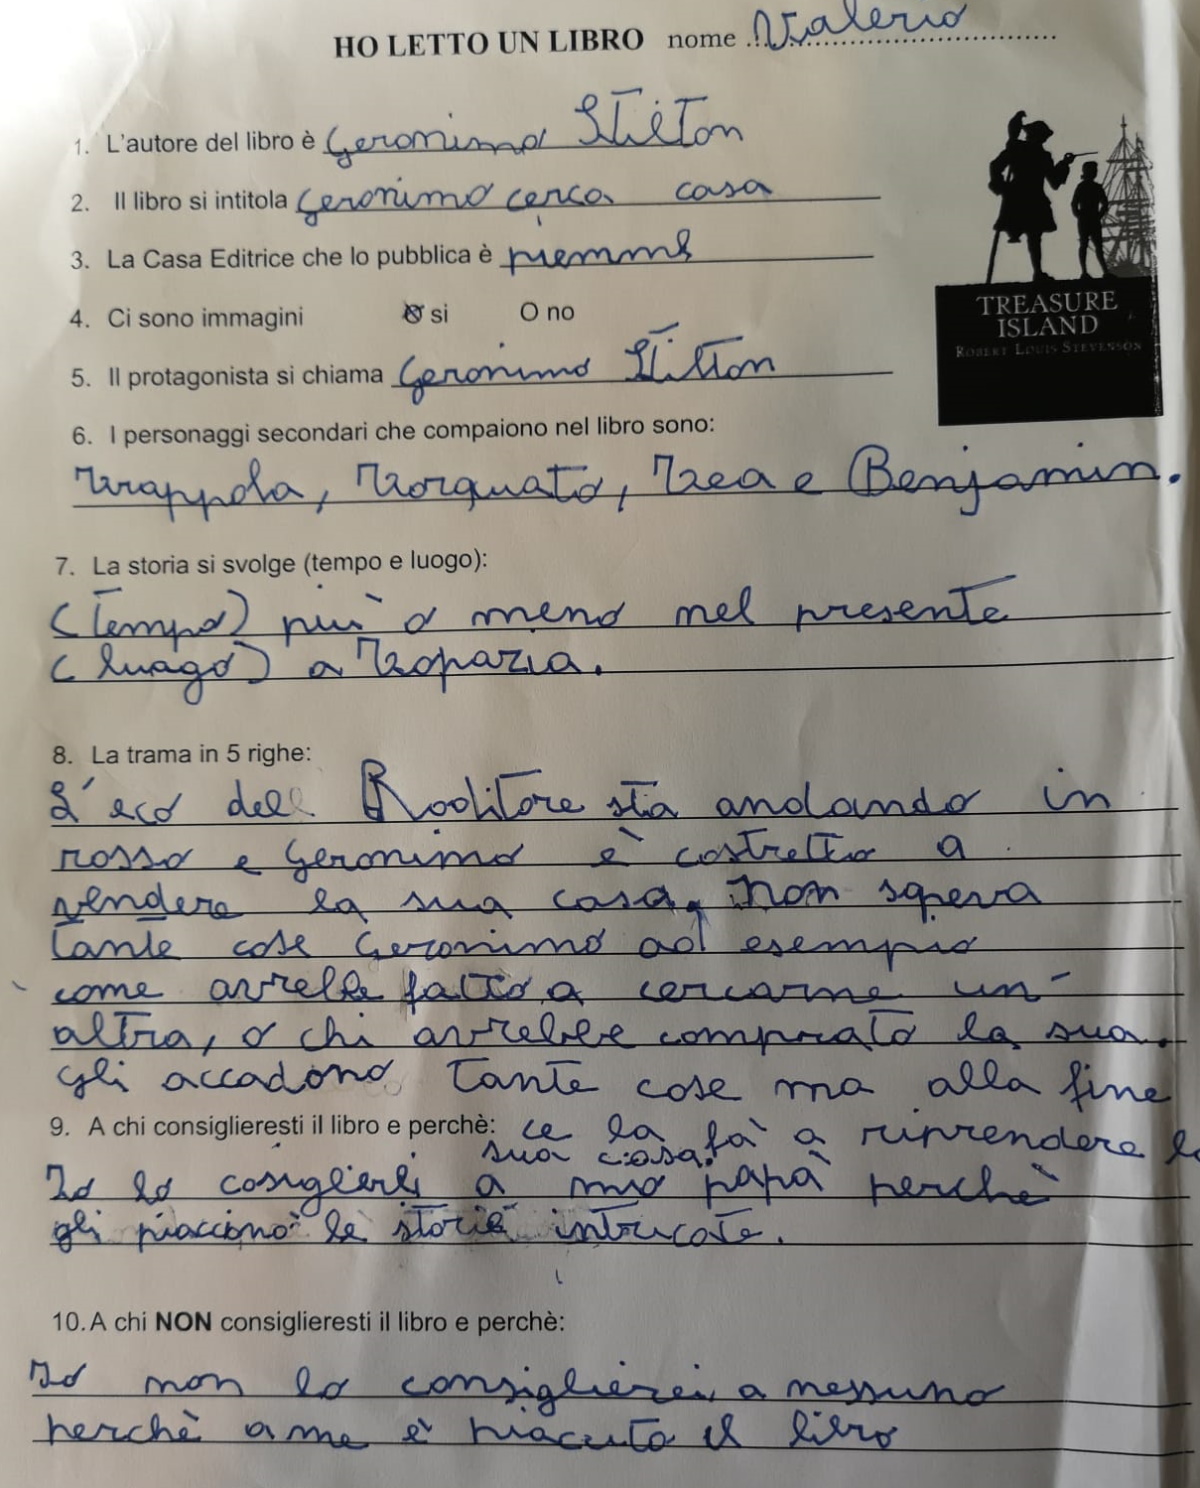 HO LETTO UN LIBRO nome Valerio
1. L'autore del libro è Geronimo Stilton
2. Il libro si intitola Geronimo cerca casa
3. La Casa Editrice che lo pubblica è piemme
4. Ci sono immagini O si O no
TREASURE
ISLAND
ROBERT LOUIS STEVENSON
5. Il protagonista si chiama Geronimo Stilton
6. I personaggi secondari che compaiono nel libro sono:
Trappola, Torquato, Tea e Benjamin.
7. La storia si svolge (tempo e luogo):
(Tempo) più o meno nel presente
(luogo) a Topazia.
8. La trama in 5 righe:
L'eco dell Roditore sta andando in
rosso e Geronimo è costretto a
vendere la sua casa. Non sapeva
tante cose Geronimo ad esempio
come avrebbe fatto a cercarne un-
altra, o chi avrebbe comprato la sua.
gli accadono tante cose ma alla fine
9. A chi consiglieresti il libro e perchè: ce la fà a riprendere la
sua casa.
Io lo cosiglierei a mio papà perchè
gli piacciono le storie intricate.
10. A chi NON consiglieresti il libro e perchè:
Io non lo consiglierei a nessuno
perchè a me è piaciuto il libro